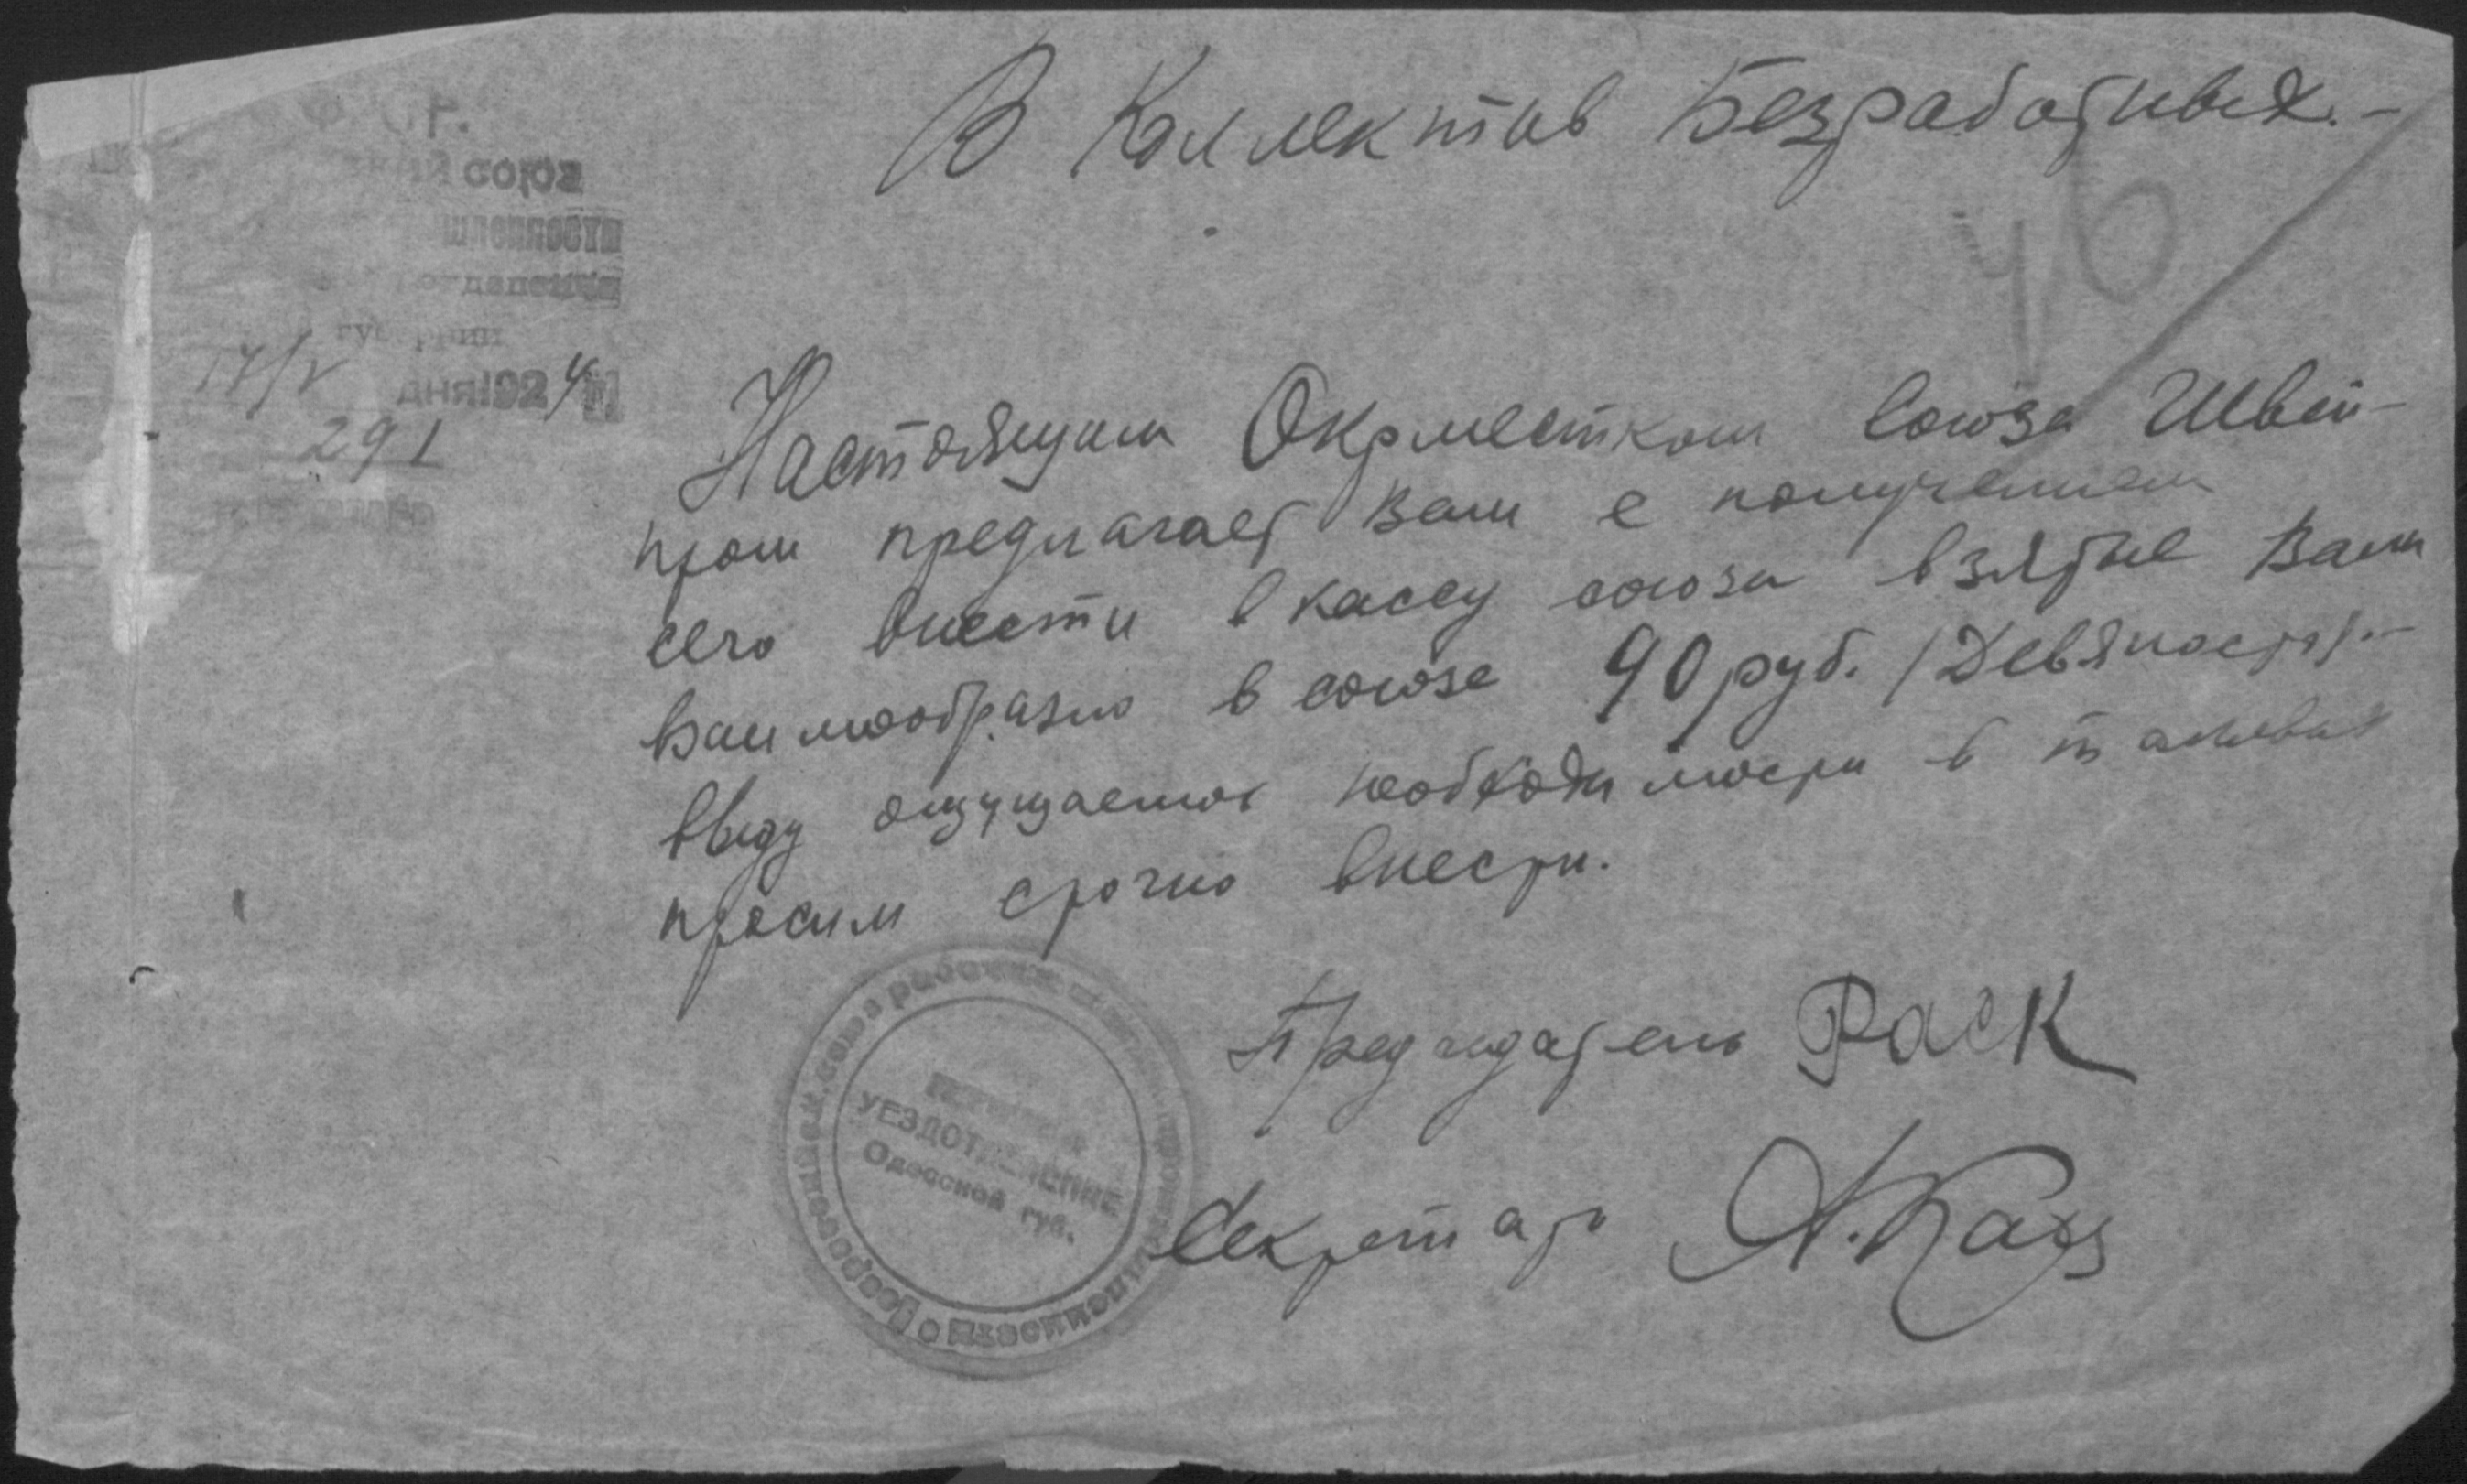 В Коллектив Безработных.-
46
союз
губернии
17/V дня 1924
291
Настоящим Окрместком Союза Швей-
пром предлагает Вам с получением
сего внести в кассу союза взятые Вами
Взаимообразно в союзе 90 руб. /Девяносто/.-
Ввиду ощущаемой необходимости в таковых
просим срочно внести.
Председатель Раск
Секретарь А. Кац
Всероссийск. союз рабочих швейной промышленности
УЕЗДОТДЕЛЕНИЕ
Одесской губ.